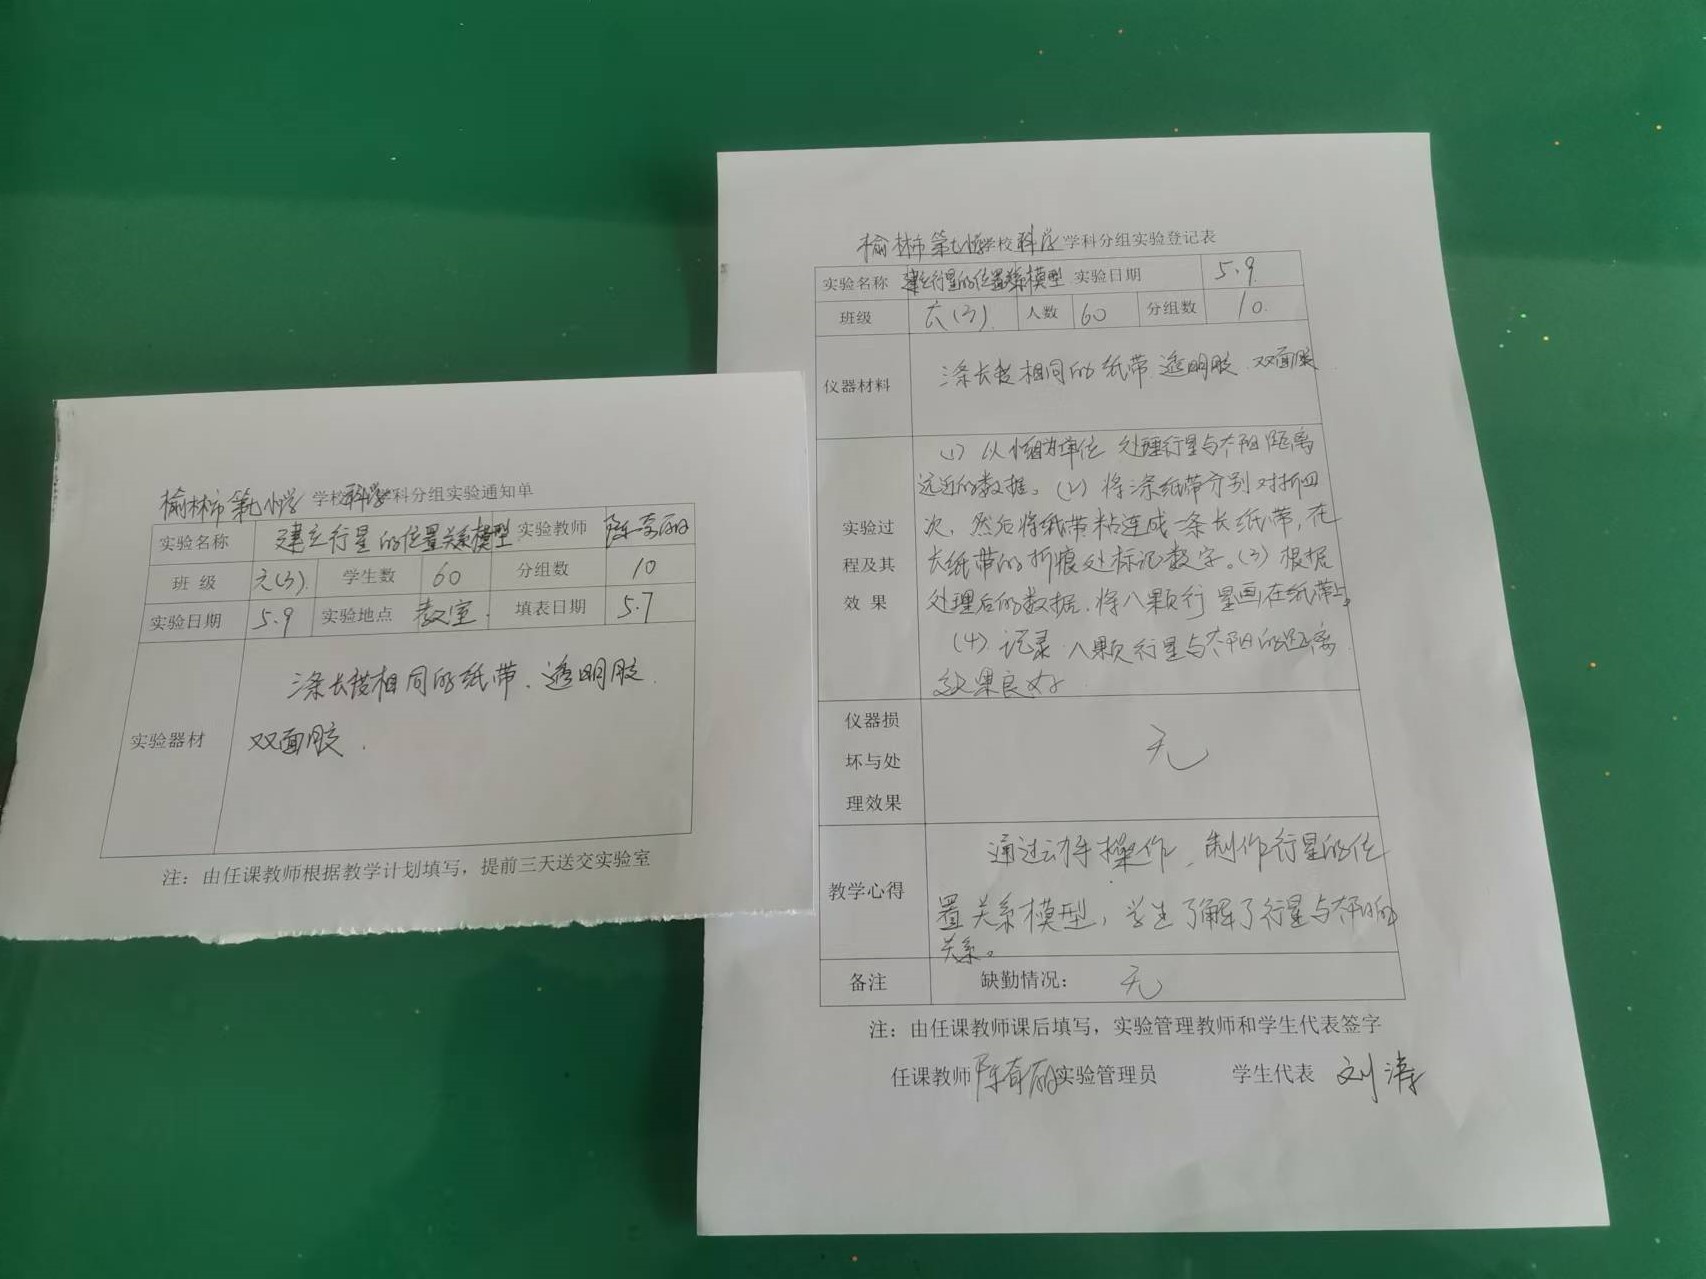 榆林市第九小学 学校科学学科分组实验通知单
实验名称 建立行星的位置关系模型 实验教师
班 级 六(3) 学生数 60 分组数 10
实验日期 5.9 实验地点 教室 填表日期 5.7
实验器材
三条长度相同的纸带、透明胶
双面胶
注：由任课教师根据教学计划填写，提前三天送交实验室
榆林市第九小学学校科学学科分组实验登记表
实验名称 建立行星的位置关系模型 实验日期 5.9
班级 六(3) 人数 60 分组数 10
仪器材料 三条长度相同的纸带 透明胶 双面胶
实验过
程及其
效 果
(1) 从小组为单位 处理行星与太阳距离
远近的数据。(2) 将三条纸带分别对折四
次，然后将纸带粘连成一条长纸带，在
长纸带的折痕处标记数字。(3) 根据
处理后的数据，将八颗行星画在纸带上。
(4) 记录八颗行星与太阳的距离
效果良好
仪器损
坏与处
理效果
无
教学心得
通过动手操作，制作行星的位
置关系模型，学生了解了行星与太阳的
关系。
备注 缺勤情况： 无
注：由任课教师课后填写，实验管理教师和学生代表签字
任课教师 实验管理员 学生代表 刘涛